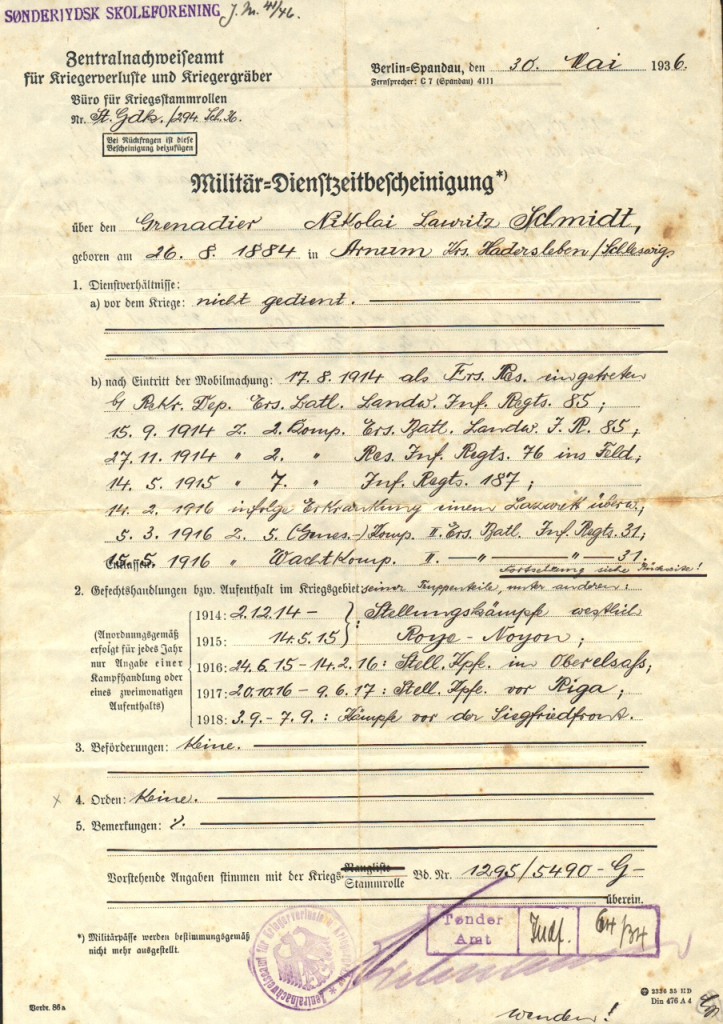 SØNDERJYDSK SKOLEFORENING J. Nr. 41/46.
Zentralnachweiseamt
für Kriegerverluste und Kriegergräber
Büro für Kriegsstammrollen
Nr. St. Gdk./294. Sch. 36.
Bei Rückfragen ist diese
Bescheinigung beizufügen
Berlin=Spandau, den 30. Mai 1936.
Fernsprecher: C 7 (Spandau) 4111
Militär=Dienstzeitbescheinigung*)
über den Grenadier Nikolai Lawritz Schmidt,
geboren am 26. 8. 1884 in Arnum Krs. Hadersleben/Schleswig
1. Dienstverhältnisse:
a) vor dem Kriege: nicht gedient.
b) nach Eintritt der Mobilmachung: 17. 8. 1914 als Ers. Res. eingetreten
b/ Rekr. Dep. Ers. Batl. Landw. Inf. Regts. 85;
15. 9. 1914 z. 2. Komp. Ers. Batl. Landw. I. R. 85;
27. 11. 1914 " 2. " Res. Inf. Regts. 76 ins Feld;
14. 5. 1915 " 7. " Inf. Regts. 187;
14. 2. 1916 infolge Erkrankung einem Lazarett überw.;
5. 3. 1916 z. 5. (Genes.-) Komp. II. Ers. Batl. Inf. Regts. 31;
Entlassen:
15. 5. 1916 " Wachtkomp. II. — " — " — 31.
Fortsetzung siehe Rückseite!
2. Gefechtshandlungen bzw. Aufenthalt im Kriegsgebiet: seiner Truppenteile, unter anderen:
(Anordnungsgemäß
erfolgt für jedes Jahr
nur Angabe einer
Kampfhandlung oder
eines zweimonatigen
Aufenthalts)
1914: 2.12.14 – Stellungskämpfe westlich
1915: 14.5.15 : Roye - Noyon;
1916: 24.6.15 – 14.2.16: Stell. Kpfe. im Oberelsaß;
1917: 20.10.16 – 9.6.17: Stell. Kpfe. vor Riga;
1918: 3.9. – 7.9.: Kämpfe vor der Siegfriedfront.
3. Beförderungen: Keine.
x 4. Orden: Keine.
5. Bemerkungen: ·/.
Vorstehende Angaben stimmen mit der Kriegs= Rangliste
Stammrolle Bd. Nr. 1295/5490 - G -
überein.
*) Militärpässe werden bestimmungsgemäß
nicht mehr ausgestellt.
Zentralnachweiseamt für Kriegerverluste u. Kriegergräber
Tønder
Amt
Indf.
64/34
Vordr. 86a
2536 35 HD
Din 476 A 4
wenden!